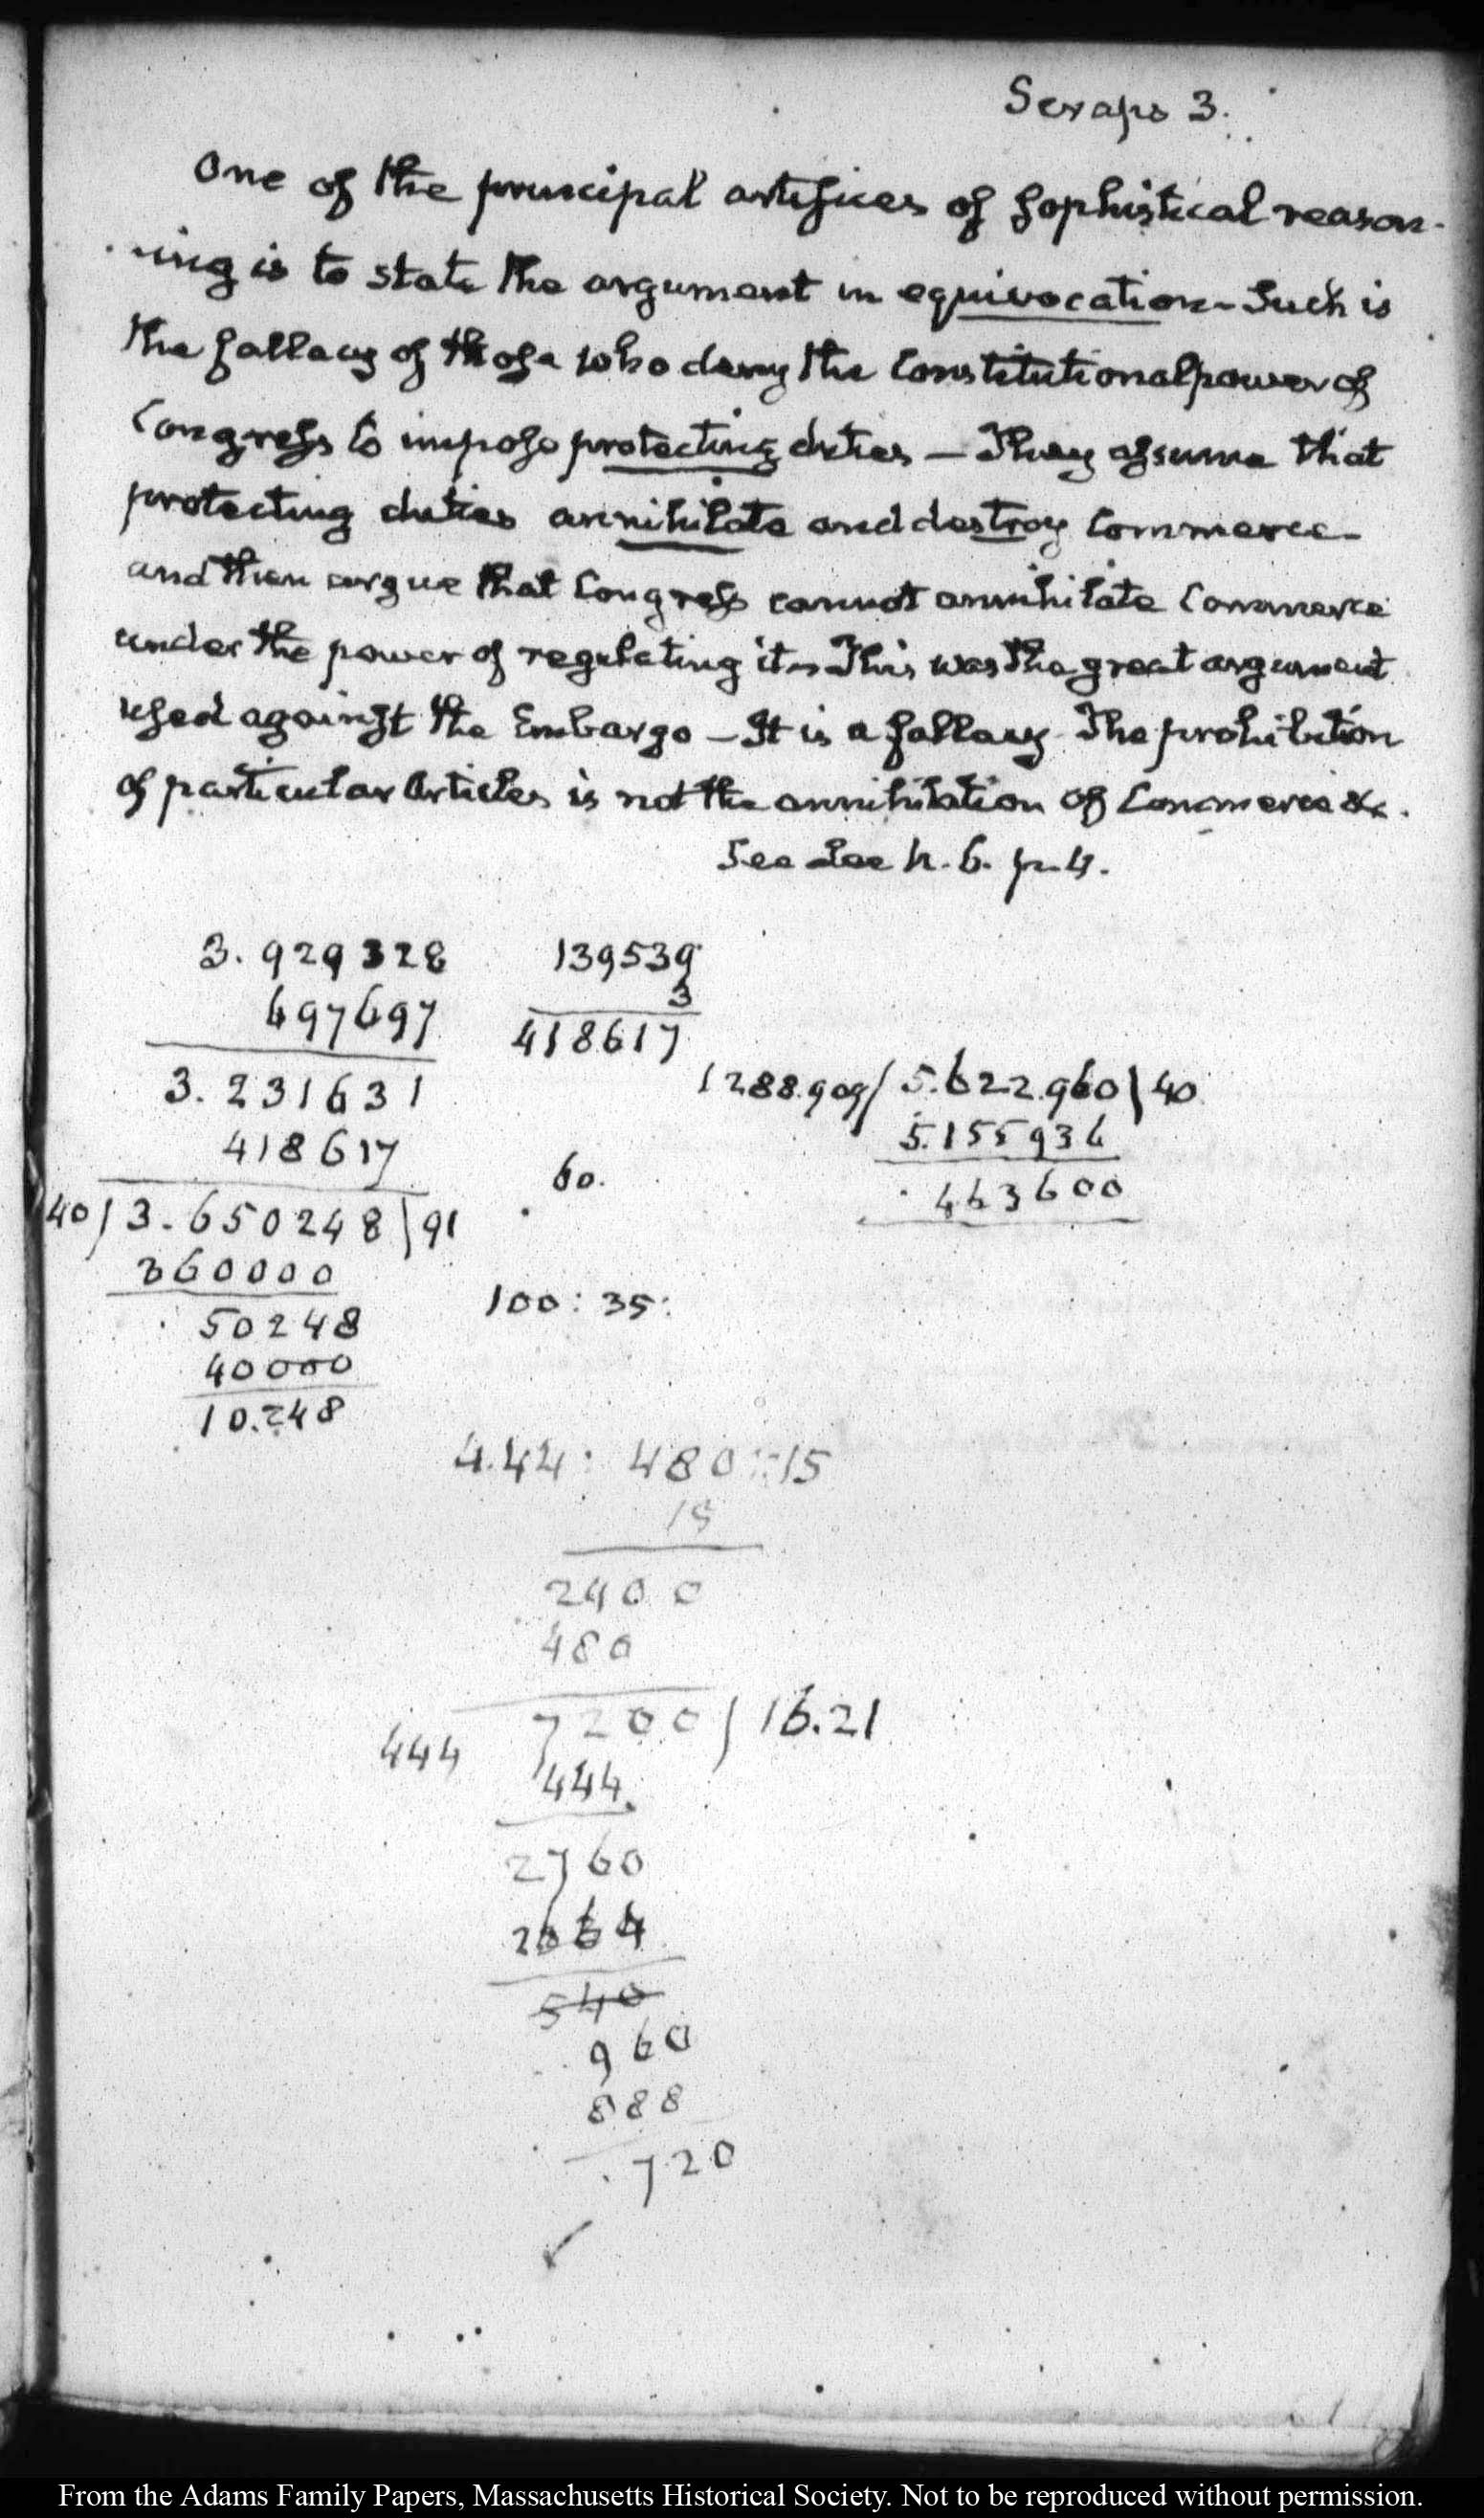 Scraps 3.
One of the principal artifices of sophistical reason-
ing is to state the argument in equivocation - Such is
the fallacy of those who deny the Constitutional power of
Congress to impose protecting duties — They assume that
protecting duties annihilate and destroy Commerce -
and then argue that Congress cannot annihilate Commerce
under the power of regulating it - This was the great argument
used against the Embargo — It is a fallacy. The prohibition
of particular Articles is not the annihilation of Commerce &c.
See p. 4.
3.929328 139539
697697 3
3.231631 418617
1288.909 / 5.622.960 \ 40
418617 5.155936
60. 463600
40 / 3.650248 \ 91
360000
100 : 35 :
50248
40000
10.248
4.44 : 480 :: 15
15
2400
480
444 7200 / 16.21
444
2760
2664
540
960
888
720
From the Adams Family Papers, Massachusetts Historical Society. Not to be reproduced without permission.